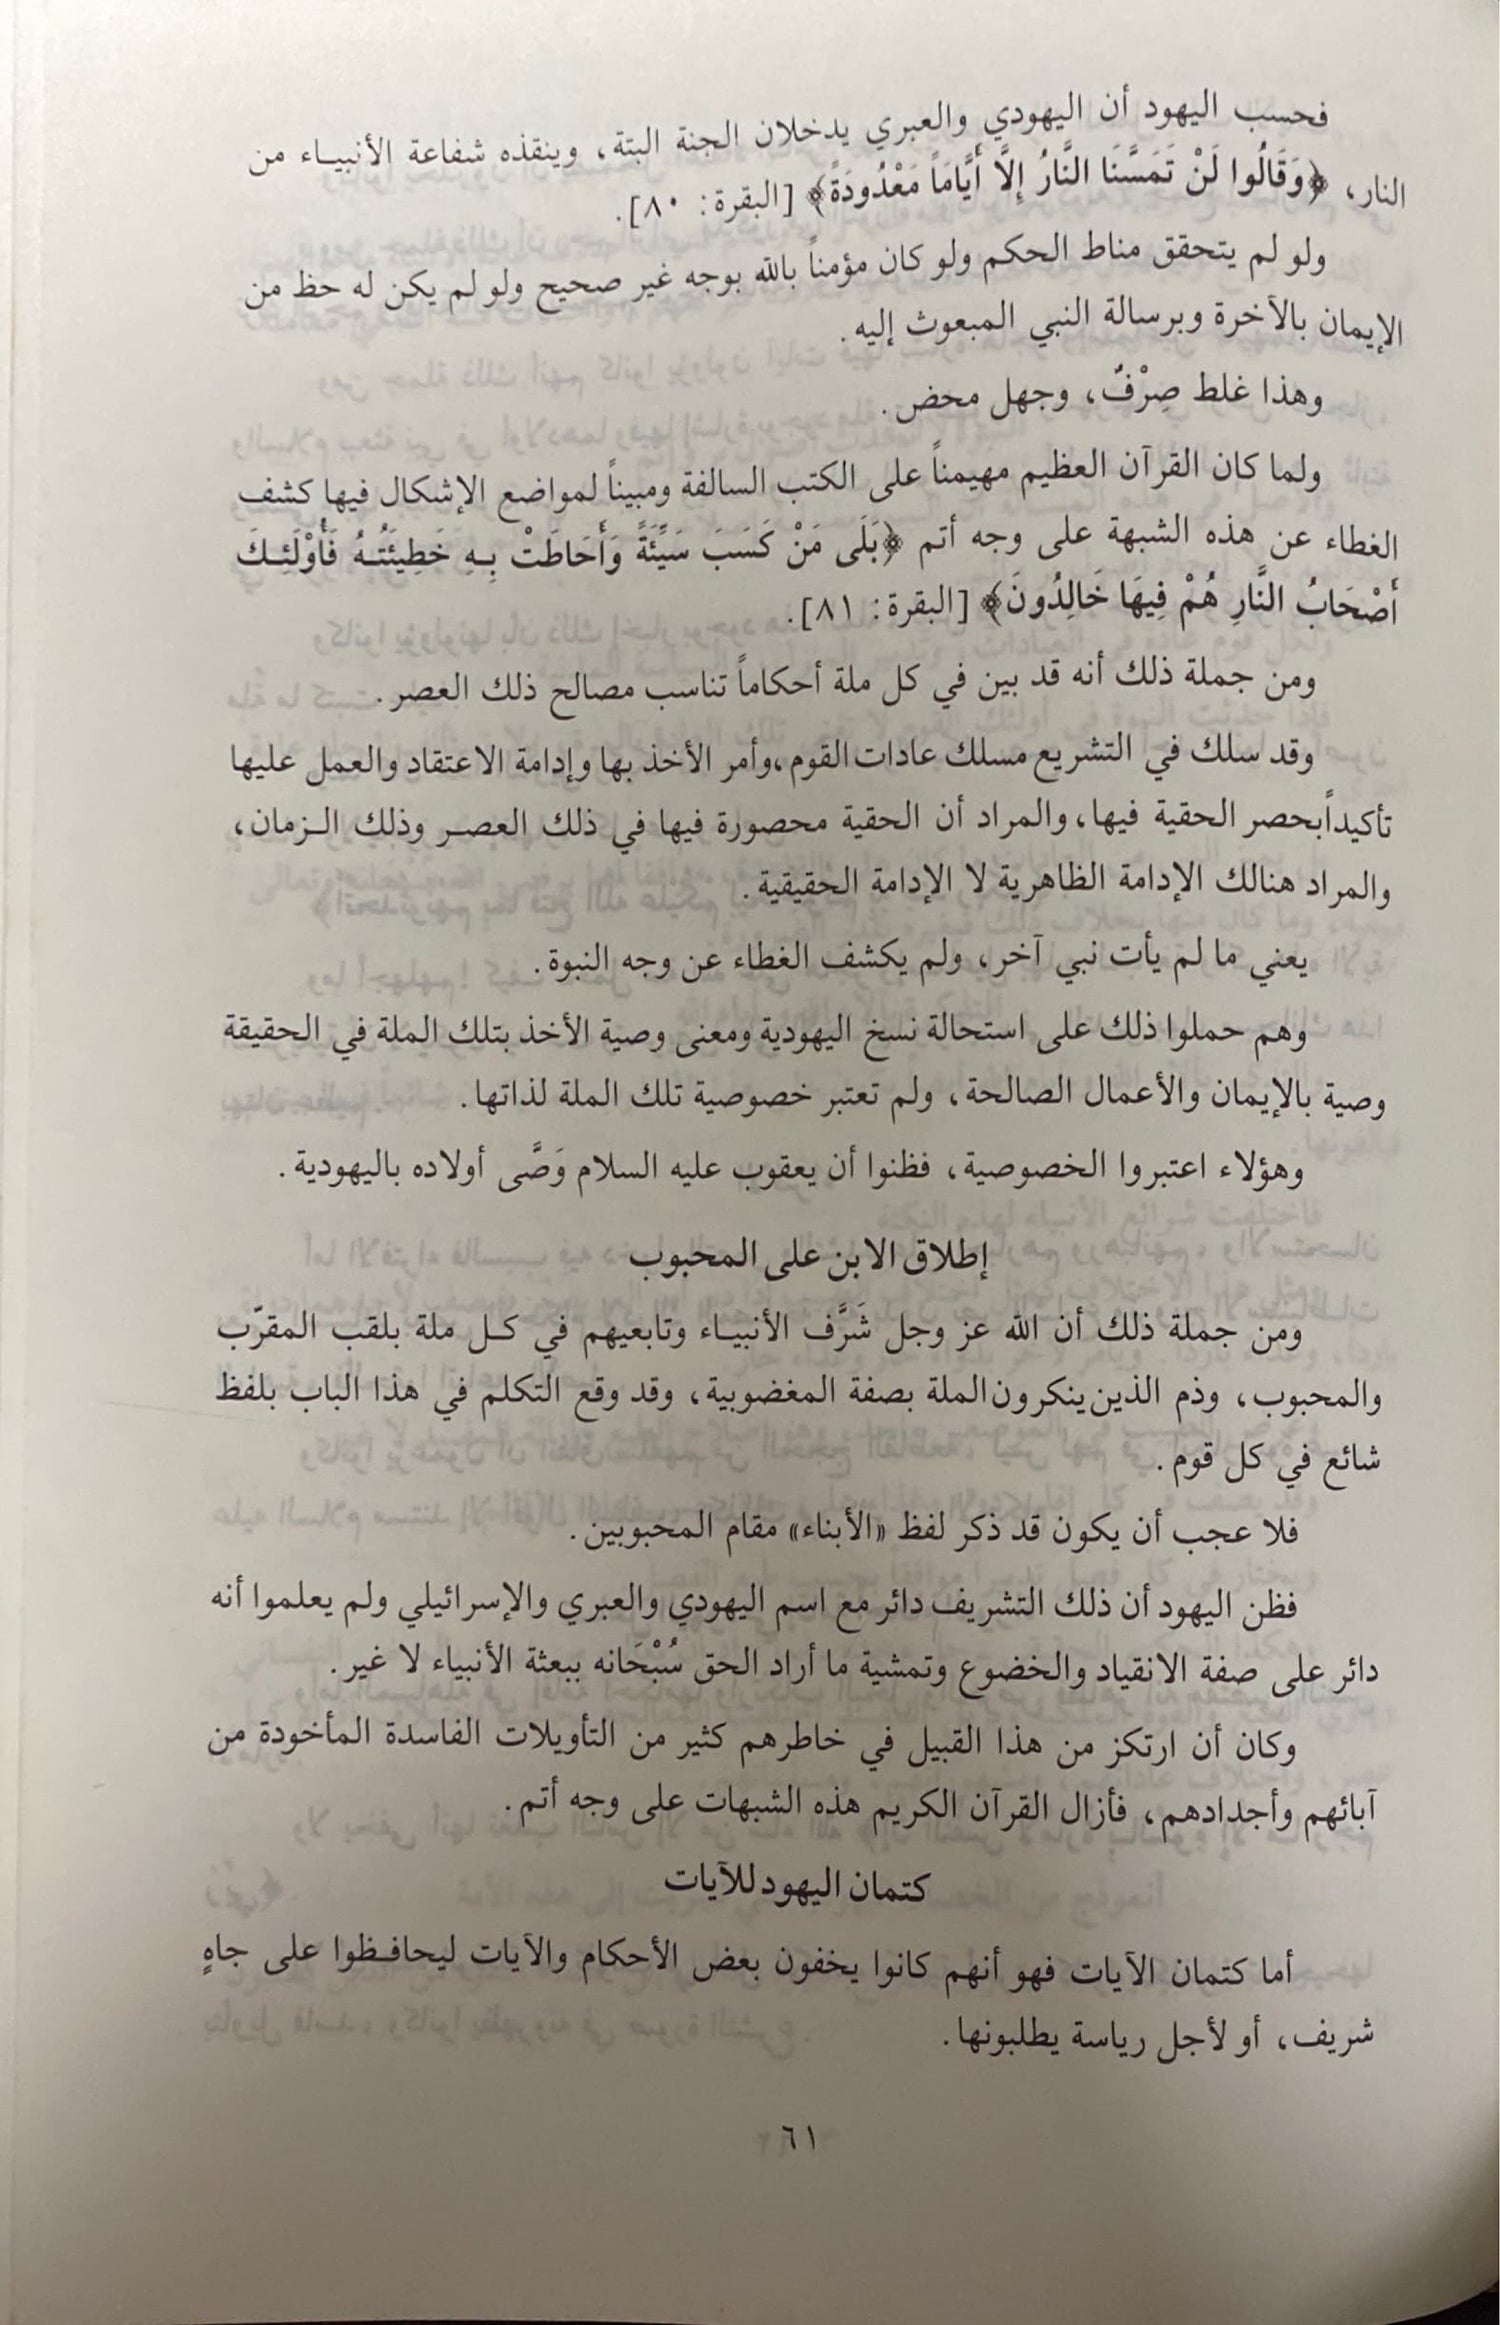 فحسب اليهود أن اليهودي والعبري يدخلان الجنة البتة، وينقذه شفاعة الأنبيـاء من
النار، ﴿وَقَالُوا لَنْ تَمَسَّنَا النَّارُ إِلَّا أَيَّامَاً مَعْدُودَةً﴾ [البقرة: ٨٠].
ولو لم يتحقق مناط الحكم ولو كان مؤمناً بالله بوجه غير صحيح ولو لم يكن له حظ من
الإيمان بالآخرة وبرسالة النبي المبعوث إليه.
وهذا غلط صِرْفٌ، وجهل محض.
ولما كان القرآن العظيم مهيمناً على الكتب السالفة ومبيناً لمواضع الإشكال فيها كشف
الغطاء عن هذه الشبهة على وجه أتم ﴿بَلَى مَنْ كَسَبَ سَيِّئَةً وَأَحَاطَتْ بِـهِ خَطِيئَتُـهُ فَأُوْلَئِـكَ
أَصْحَابُ النَّارِ هُمْ فِيهَا خَالِدُونَ﴾ [البقرة: ٨١].
ومن جملة ذلك أنه قد بين في كل ملة أحكاماً تناسب مصالح ذلك العصر.
وقد سلك في التشريع مسلك عادات القوم،وأمر الأخذ بها وإدامة الاعتقاد والعمل عليها
تأكيداًبحصر الحقية فيها، والمراد أن الحقية محصورة فيها في ذلك العصـر وذلك الـزمان،
والمراد هنالك الإدامة الظاهرية لا الإدامة الحقيقية.
يعني ما لم يأت نبي آخر، ولم يكشف الغطاء عن وجه النبوة.
وهم حملوا ذلك على استحالة نسخ اليهودية ومعنى وصية الأخذ بتلك الملة في الحقيقة
وصية بالإيمان والأعمال الصالحة، ولم تعتبر خصوصية تلك الملة لذاتها.
وهؤلاء اعتبروا الخصوصية، فظنوا أن يعقوب عليه السلام وَصَّى أولاده باليهودية.
إطلاق الابن على المحبوب
ومن جملة ذلك أن الله عز وجل شَرَّف الأنبيـاء وتابعيهم في كـل ملة بلقب المقرّب
والمحبوب، وذم الذين ينكرون الملة بصفة المغضوبية، وقد وقع التكلم في هذا الباب بلفظ
شائع في كل قوم.
فلا عجب أن يكون قد ذكر لفظ «الأبناء» مقام المحبوبين.
فظن اليهود أن ذلك التشريف دائر مع اسم اليهودي والعبري والإسرائيلي ولم يعلموا أنه
دائر على صفة الانقياد والخضوع وتمشية ما أراد الحق سُبْحَانه ببعثة الأنبياء لا غير.
وكان أن ارتكز من هذا القبيل في خاطرهم كثير من التأويلات الفاسدة المأخودة من
آبائهم وأجدادهم، فأزال القرآن الكريم هذه الشبهات على وجه أتم.
كتمان اليهود للآيات
أما كتمان الآيات فهو أنهم كانوا يخفون بعض الأحكام والآيات ليحافـظوا على جاهٍ
شريف، أو لأجل رياسة يطلبونها.
٦١